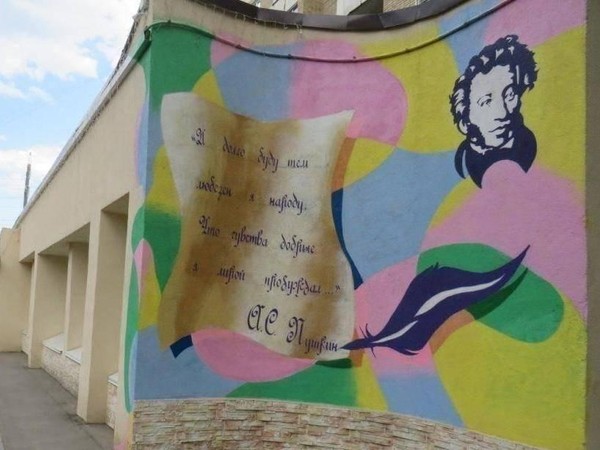 «И долго буду тем
любезен я народу,
Что чувства добрые
я лирой пробуждал...»
А.С. Пушкин